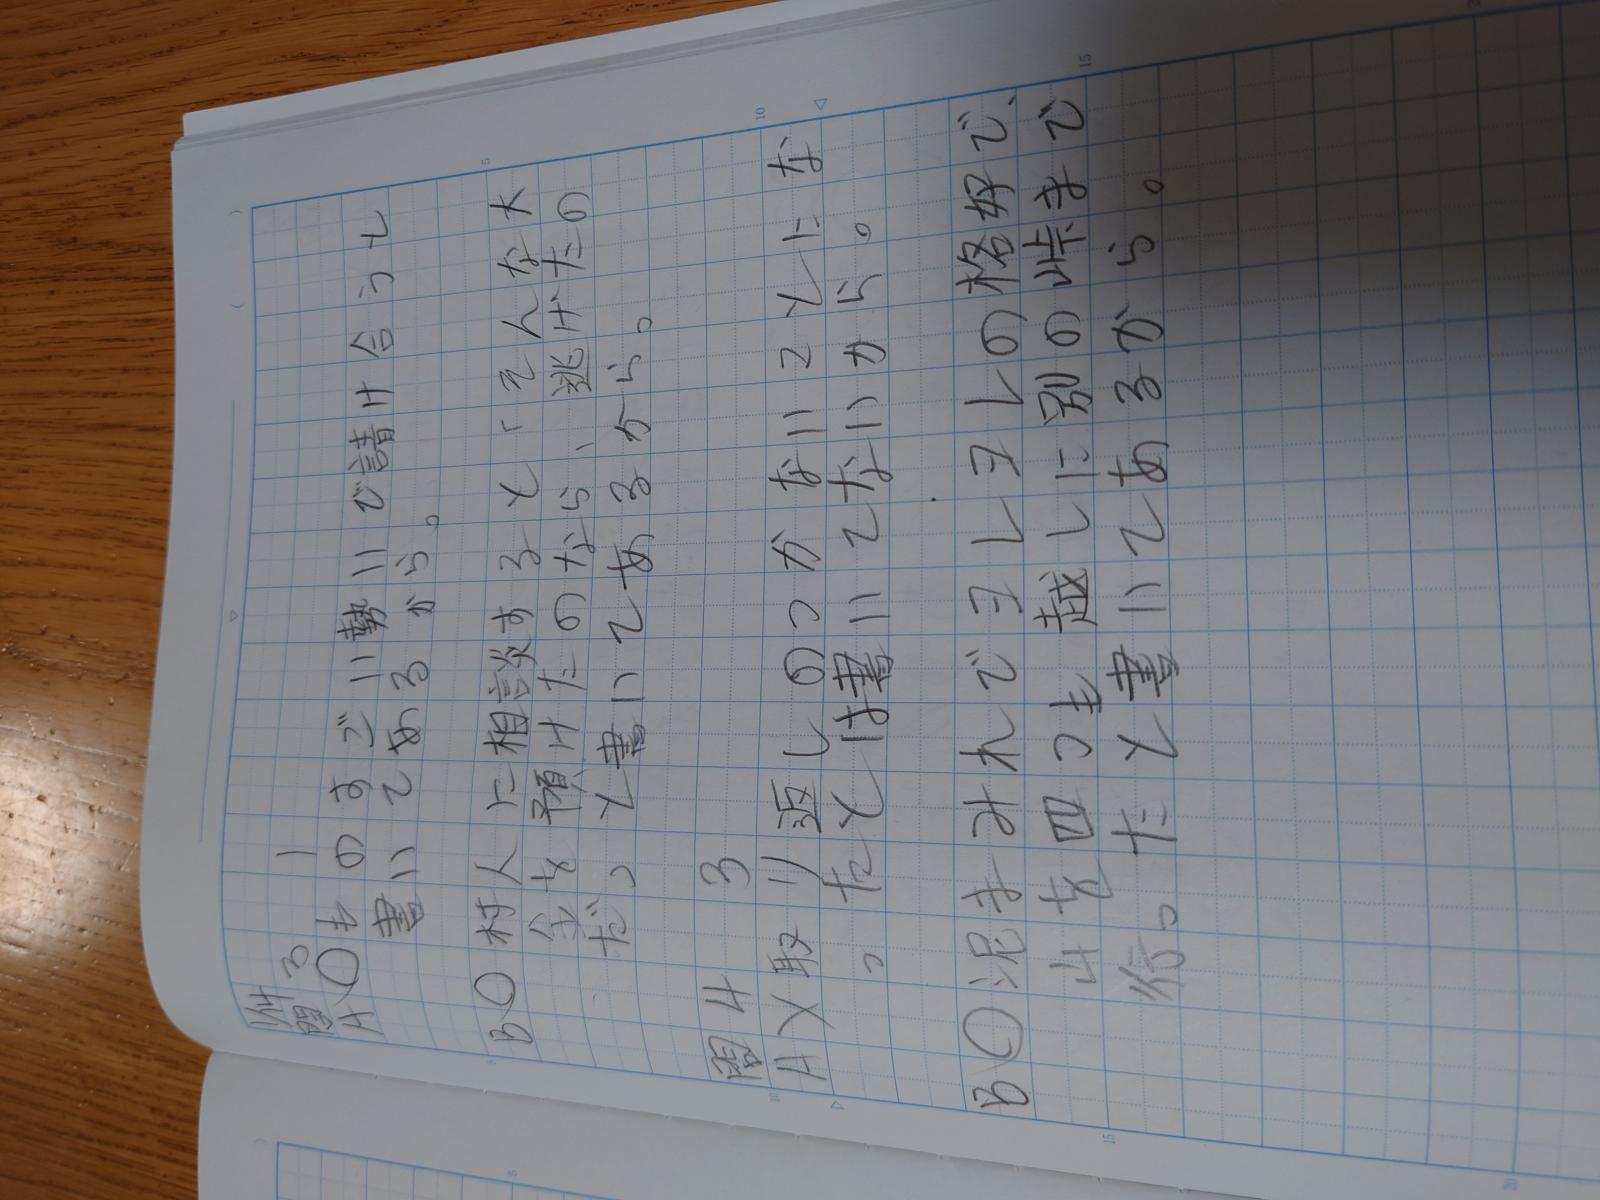 問3 1
A〇ものすごい勢いで請け合うと
書いてあるから。
B〇村人に相談すると「そんな大
金を預けたのなら、逃げたの
だ」と書いてあるから。
問4 3
A×取り返しのつかないことにな
ったとは書いてないから。
B〇泥まみれでヨレヨレの格好で、
山を四つも越しに別の峠まで
行った と書いてあるから。